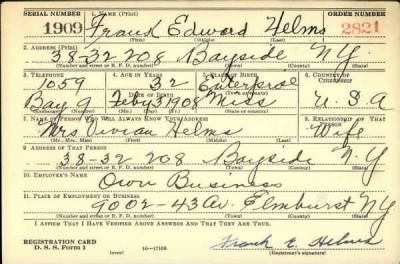 SERIAL NUMBER 1. NAME (Print) ORDER NUMBER
1909 Frank Edward Helms 2821
(First) (Middle) (Last)
2. ADDRESS (Print)
38-32 208 Bayside NY
(Number and street or R. F. D. number) (Town) (County) (State)
3. TELEPHONE 4. AGE IN YEARS 5. PLACE OF BIRTH 6. COUNTRY OF CITIZENSHIP
1059 32 Enterprise
DATE OF BIRTH (Town or county)
Bay 9 Feb 3 1908 Miss U.S.A
(Exchange) (Number) (Mo.) (Day) (Yr.) (State or country)
7. NAME OF PERSON WHO WILL ALWAYS KNOW YOUR ADDRESS 8. RELATIONSHIP OF THAT PERSON
Mrs Vivian Helms Wife
(Mr., Mrs., Miss) (First) (Middle) (Last)
9. ADDRESS OF THAT PERSON
38-32 208 Bayside N.Y
(Number and street or R. F. D. number) (Town) (County) (State)
10. EMPLOYER'S NAME
Own Business
11. PLACE OF EMPLOYMENT OR BUSINESS
9002-43 Av. Elmhurst NY
(Number and street or R. F. D. number) (Town) (County) (State)
I AFFIRM THAT I HAVE VERIFIED ABOVE ANSWERS AND THAT THEY ARE TRUE.
REGISTRATION CARD
D. S. S. Form 1 (over) 16—17105 Frank E. Helms
(Registrant's signature)